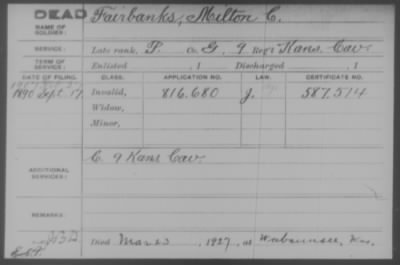 DEAD
NAME OF SOLDIER: Fairbanks, Milton C.
SERVICE: Late rank, P. Co. G, 9 Reg't Kans. Cav.
TERM OF SERVICE: Enlisted , 1 Discharged , 1
DATE OF FILING. CLASS. APPLICATION NO. LAW. CERTIFICATE NO.
1890 Sept. 17. Invalid, 816.680 J. 587.574
Widow,
Minor,
ADDITIONAL SERVICES: C. 9 Kans Cav.
REMARKS:
Died , 1927, at Wabaunsee, Kas.